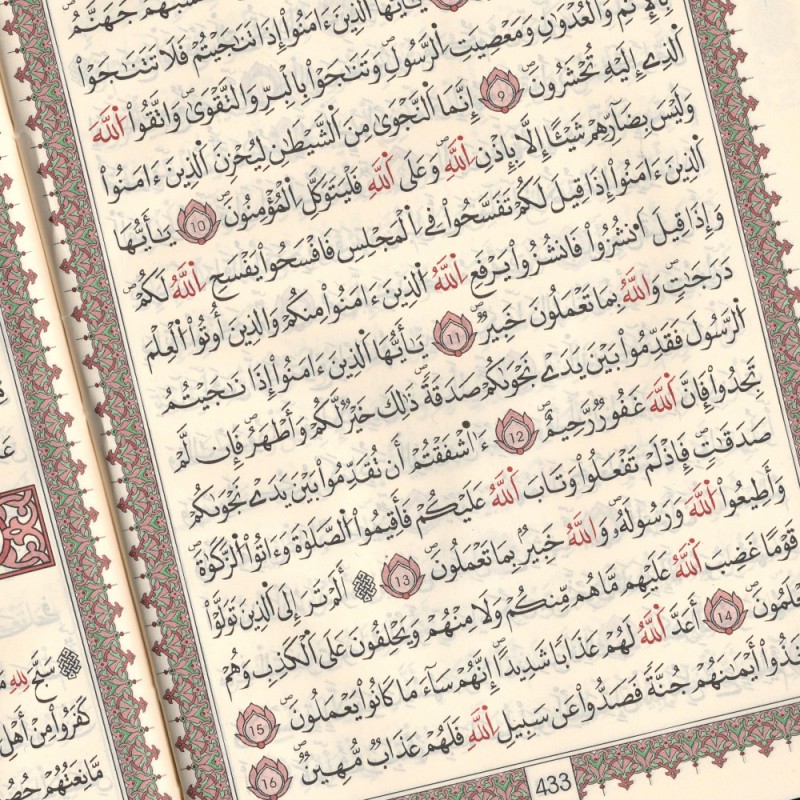 جَهَنَّمُ
يَٰأَيُّهَا اَ۬لذِينَ ءَامَنُوٓاْ إِذَا تَنَٰجَيْتُمْ فَلَا تَتَنَٰجَوْاْ
بِالِاثْمِ وَالْعُدْوَٰنِ وَمَعْصِيَتِ اِ۬لرَّسُولِ وَتَنَٰجَوْاْ بِالْبِرِّ وَالتَّقْوَىٰ وَاتَّقُواْ اُ۬للَّهَ
اَ۬لذِےٓ إِلَيْهِ تُحْشَرُونَ 9 إِنَّمَا اَ۬لنَّجْوَىٰ مِنَ اَ۬لشَّيْطَٰنِ لِيُحْزِنَ اَ۬لذِينَ ءَامَنُواْ
وَلَيْسَ بِضَآرِّهِمْ شَيْـًٔا إِلَّا بِإِذْنِ اِ۬للَّهِ وَعَلَى اَ۬للَّهِ فَلْيَتَوَكَّلِ اِ۬لْمُؤْمِنُونَ 10 يَٰأَيُّهَا
اَ۬لذِينَ ءَامَنُوٓاْ إِذَا قِيلَ لَكُمْ تَفَسَّحُواْ فِے اِ۬لْمَجْلِسِ فَافْسَحُواْ يَفْسَحِ اِ۬للَّهُ لَكُمْ
وَإِذَا قِيلَ اَ۟نشُزُواْ فَانشُزُواْ يَرْفَعِ اِ۬للَّهُ اُ۬لذِينَ ءَامَنُواْ مِنكُمْ وَالذِينَ أُوتُواْ اُ۬لْعِلْمَ
دَرَجَٰتٍ وَاللَّهُ بِمَا تَعْمَلُونَ خَبِيرٌ 11 يَٰأَيُّهَا اَ۬لذِينَ ءَامَنُوٓاْ إِذَا نَٰجَيْتُمُ
اُ۬لرَّسُولَ فَقَدِّمُواْ بَيْنَ يَدَےْ نَجْوَىٰكُمْ صَدَقَةً ذَٰلِكَ خَيْرٌ لَّكُمْ وَأَطْهَرُ فَإِن لَّمْ
تَجِدُواْ فَإِنَّ اَ۬للَّهَ غَفُورٌ رَّحِيمٌ 12 ءَآشْفَقْتُمْ أَن تُقَدِّمُواْ بَيْنَ يَدَےْ نَجْوَىٰكُمْ
صَدَقَٰتٍ فَإِذْ لَمْ تَفْعَلُواْ وَتَابَ اَ۬للَّهُ عَلَيْكُمْ فَأَقِيمُواْ اُ۬لصَّلَوٰةَ وَءَاتُواْ اُ۬لزَّكَوٰةَ
وَأَطِيعُواْ اُ۬للَّهَ وَرَسُولَهُۥ وَاللَّهُ خَبِيرٌ بِمَا تَعْمَلُونَ 13 أَلَمْ تَرَ إِلَى اَ۬لذِينَ تَوَلَّوْاْ
قَوْمًا غَضِبَ اَ۬للَّهُ عَلَيْهِم مَّا هُم مِّنكُمْ وَلَا مِنْهُمْ وَيَحْلِفُونَ عَلَى اَ۬لْكَذِبِ وَهُمْ
يَعْلَمُونَ 14 أَعَدَّ اَ۬للَّهُ لَهُمْ عَذَابًا شَدِيدًا إِنَّهُمْ سَآءَ مَا كَانُواْ يَعْمَلُونَ 15
اَ۪تَّخَذُوٓاْ أَيْمَٰنَهُمْ جُنَّةً فَصَدُّواْ عَن سَبِيلِ اِ۬للَّهِ فَلَهُمْ عَذَابٌ مُّهِينٌ 16
433
سَبَّحَ لِلهِ
كَفَرُواْ مِنْ أَهْلِ
مَّانِعَتُهُمْ